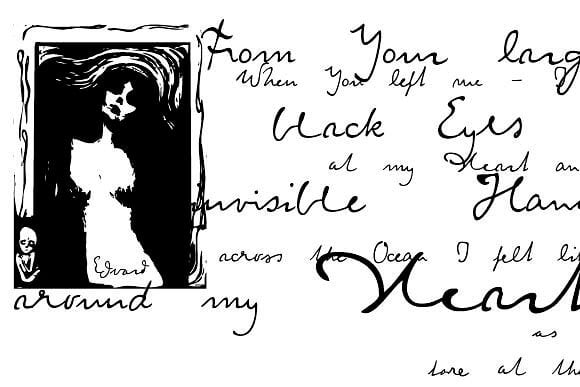 From Your larg
When You left me –
black Eyes
at my Heart an
invisible Han
across the Ocean I felt li
Edvard
around my Heart
as
tore at th